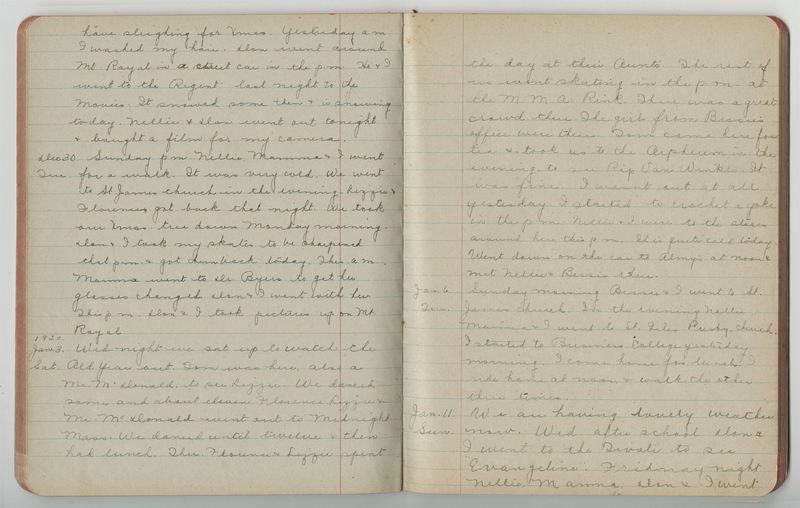 have sleighing for Xmas. Yesterday a m
I washed my hair. Don went around
Mt Royal in a street car in the p.m. He & I
went to the Regent last night to the
Movies. It snowed some then & is snowing
today. Nellie & Don went out tonight
& bought a film for my camera
Dec 30. Sunday p m Nellie Mamma & I went
Tue. for a walk. It was very cold. We went
to St James church in the evening. Lizzie &
Florence got back that night. We took
our Xmas. tree down Monday morning.
Don & I took my skates to be sharpened
that p.m. & got them back today. This a.m.
Mamma went to Dr Byers to get her
glasses changed Don & I went with her
This p.m. Don & I took pictures up on Mt
Royal
Jan 3. Wed night we sat up to watch the
Sat. Old Year out. Tom was here, also a
Mr. McDonald, to see Lizzie. We danced
some and about eleven Florence Lizzie &
Mr McDonald went out to Midnight
Mass. We danced until twelve & then
had lunch. Then Florence & Lizzie spent
the day at their Aunts. The rest of
us went skating in the p m at
the M. A. A. A. Rink. There was a great
crowd there. The girls from Bessie's
office were there. Tom came here for
tea & took us to the Orpheum in the
evening to see Rip Van Winkle. It
was fine. I wasn't out at all
yesterday. I started to crochet a yoke
in the p.m. Nellie & I were to the stores
around here this p.m. It is quite cold today.
Went down on the car to Almy's at noon &
met Nellie & Bessie there.
Jan. 6. Sunday morning Bessie & I went to St.
Tue. James Church. In the evening Nellie
Mamma & I went to St. Giles Presby. church.
I started to Business College yesterday
morning. I come home for lunch. I
ride home at noon & walk the other
three times.
Jan. 11. We are having lovely weather
Sun. now. Wed after school Don &
I went to the Tivoli to see
"Evangeline". Friday night
Nellie. Mamma, Don & I went